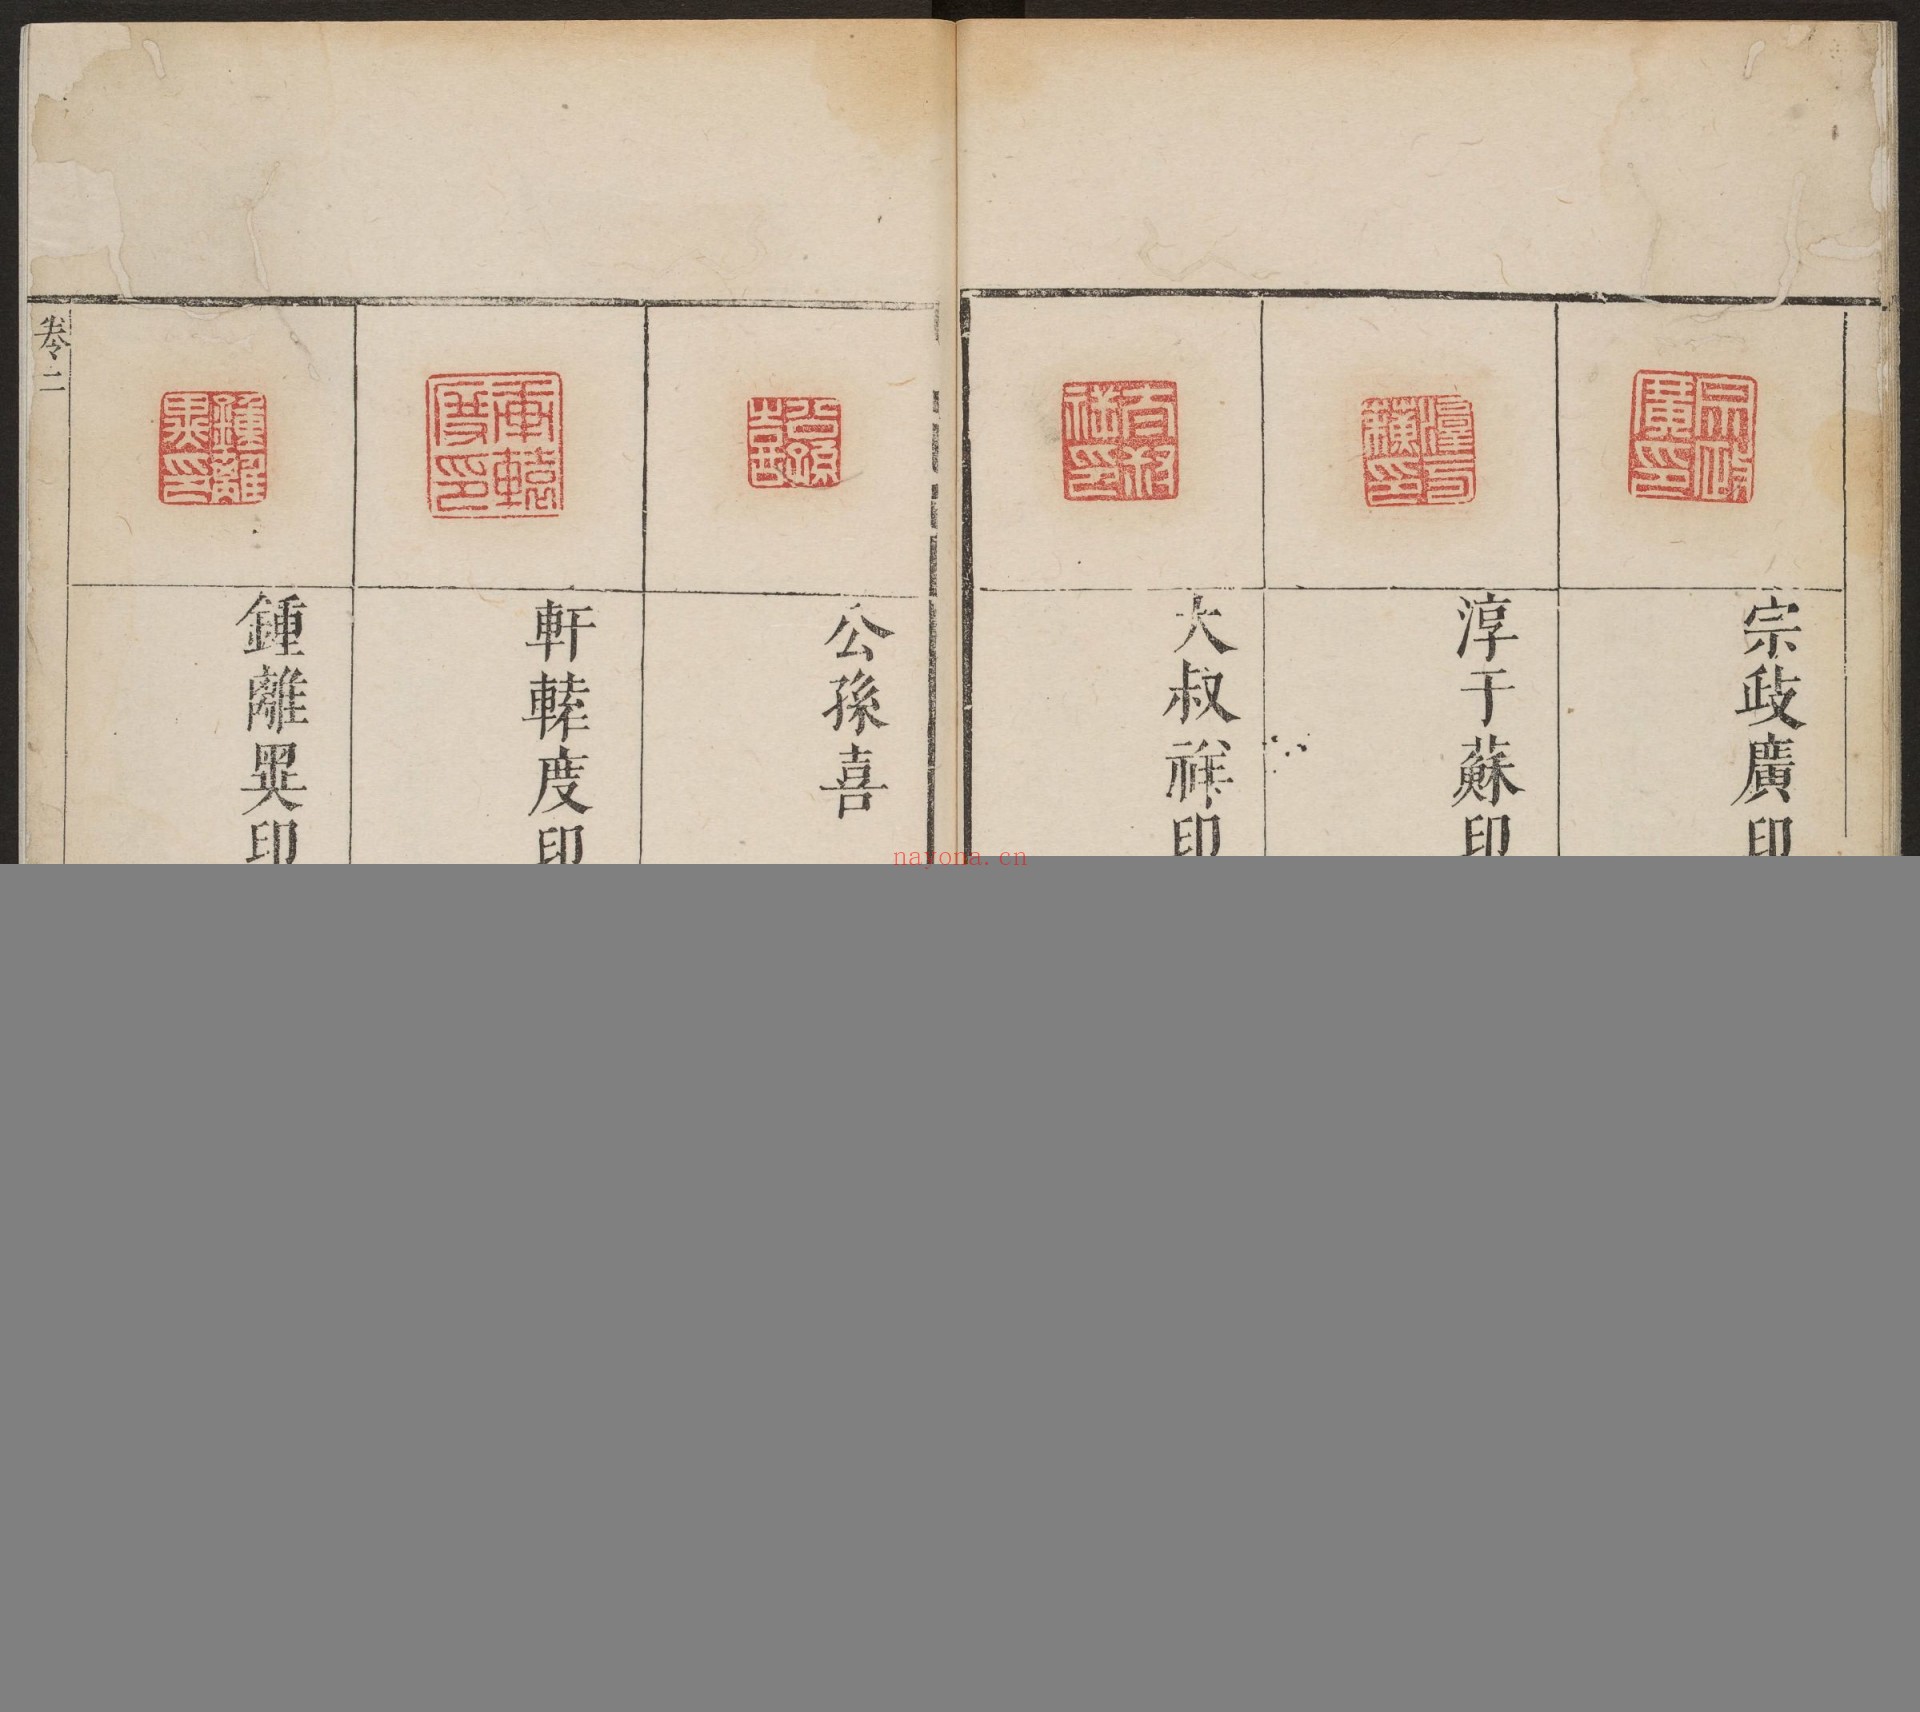 宗政廣印
淳于蘇印
大叔祥印
公孫喜
軒轅度印
鍾離異印
卷二
nayona.cn